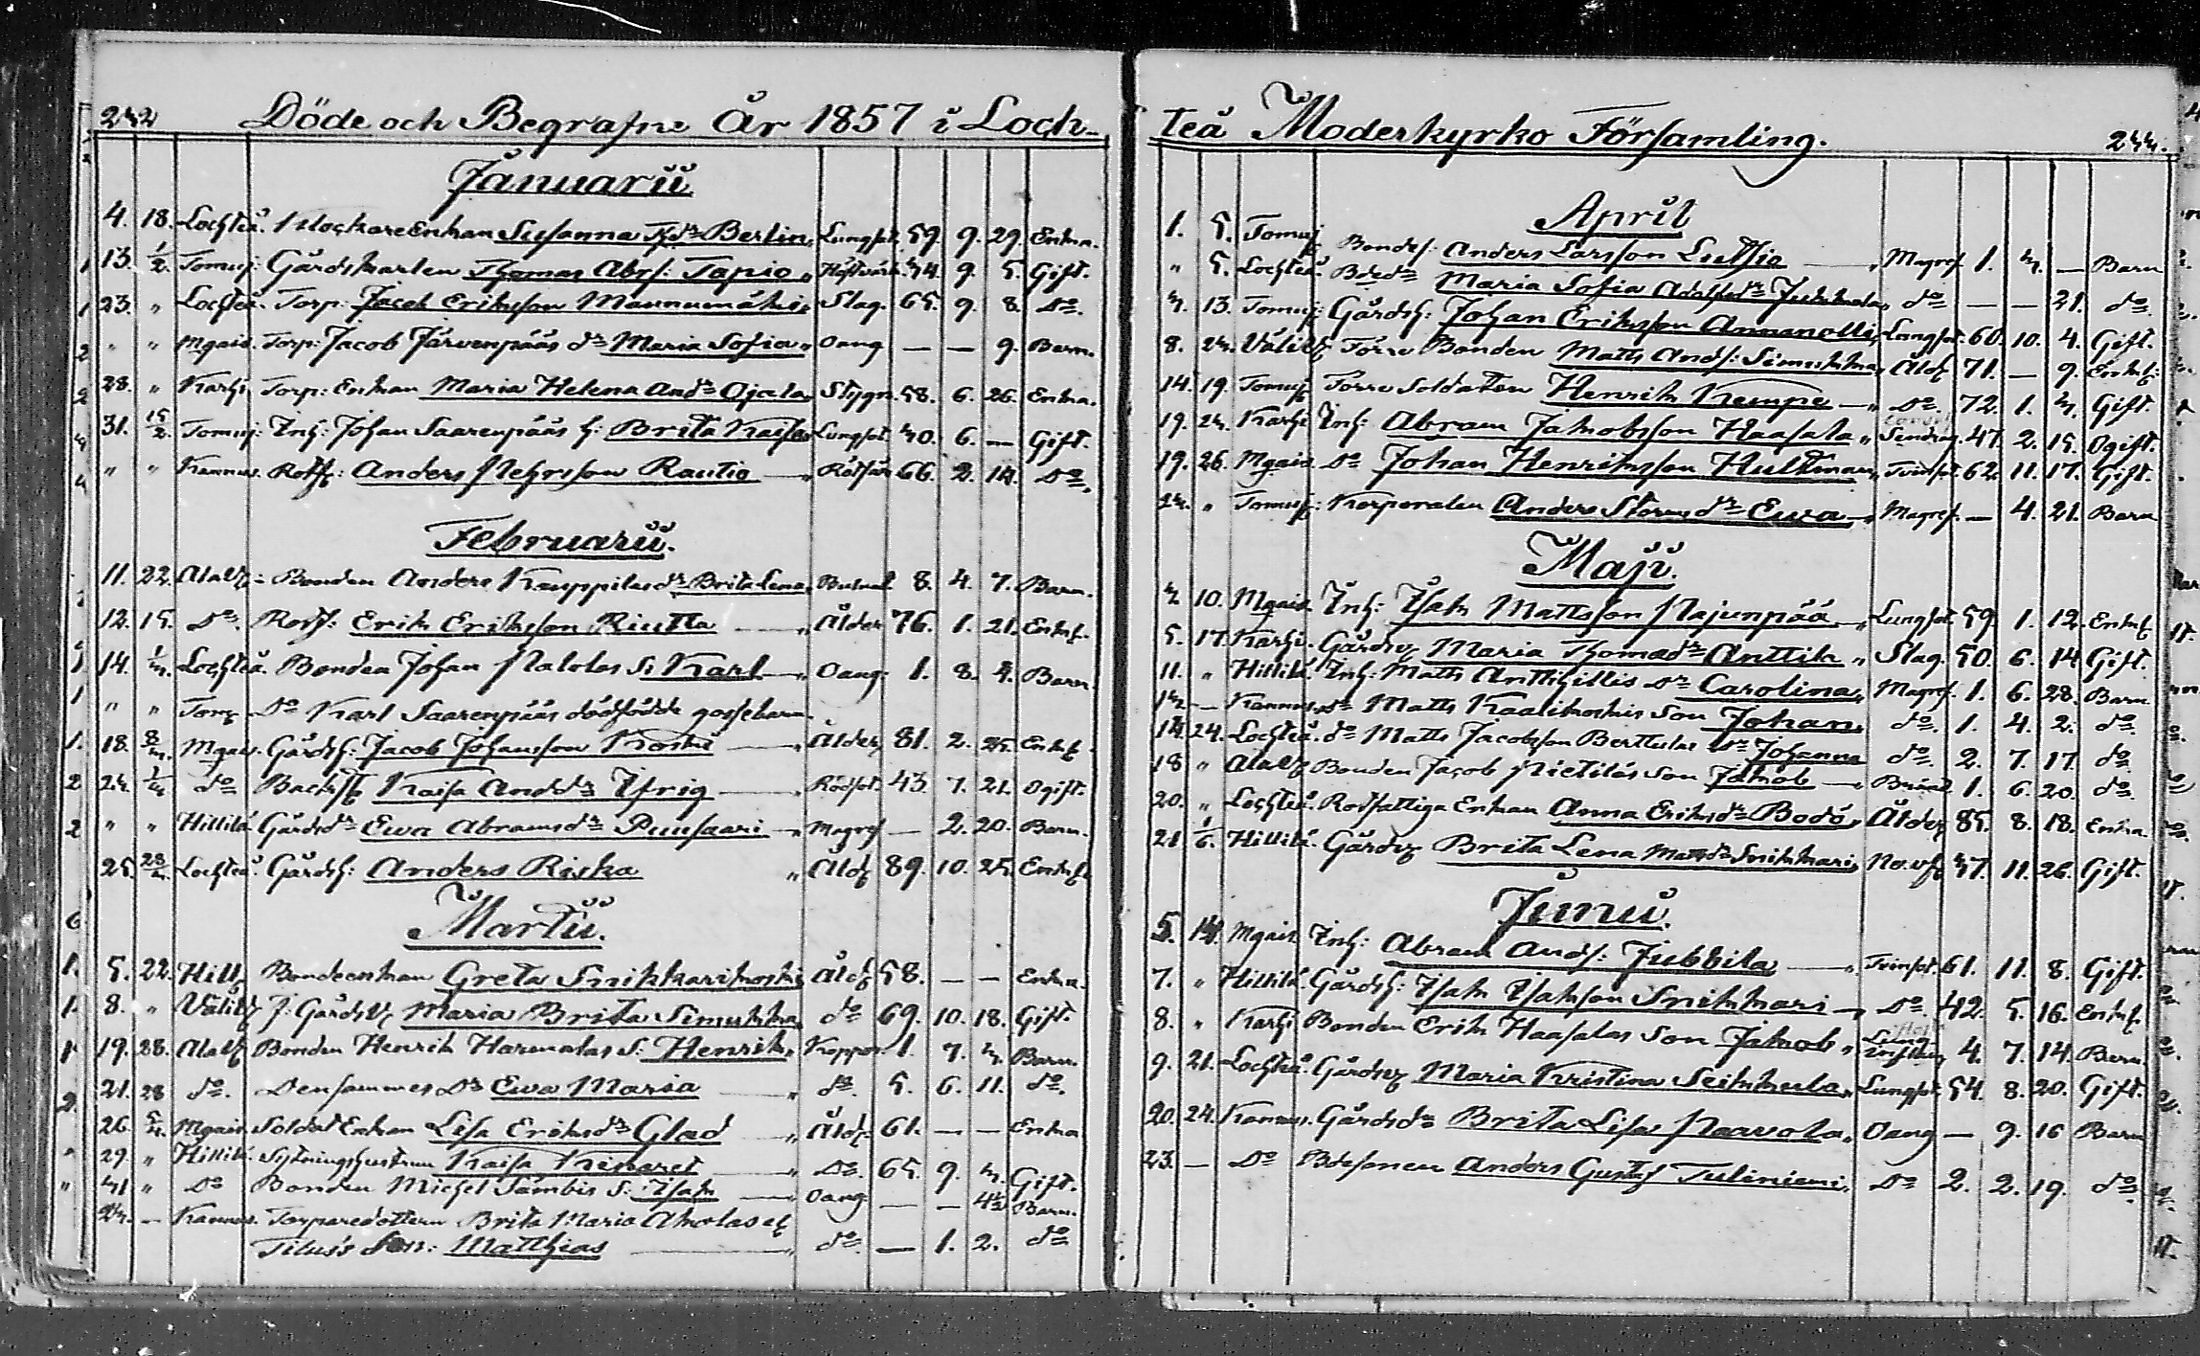 242 Döde och Begrafne År 1857 i Loch-
Januarii
4. 18. Lochteå. Klockare Enkan Susanna Berlin Lungsot. 59. 9. 29. Enka.
13. 1/2. Tomuj: Gårdskarlen Thomas Abrs: Tapio 54. 9. 5. Gift.
23. " Lochteå. Torp: Jacob Eriksson Mannumäki Slag. 65. 9. 8. Do.
" " Mgais. Torp: Jacob Järvenpääs dr Maria Sofia Oang — — 9. Barn.
28. " Karhi Torp: Enkan Maria Helena Andr Ojala Stygn. 58. 6. 26. Enka.
31. 15/2. Tomuj: Inh: Johan Saarenpääs h: Brita Kaisa Lungsot. 40. 6. — Gift.
" " Kannus. Anders Rautio 66. 2. 14. Do.
Februarii.
11. 22. Alav: Bonden Anders Kauppilas dr Brita Lena 8. 4. 7. Barn.
12. 15. Do. Erik Eriksson Riutta Ålder 76. 1. 21. Enkl.
14. 1/4. Lochteå. Bonden Johan Palolas S: Karl Oang. 1. 8. 4. Barn.
" " Do Karl Saarenpääs dödfödde gossebarn
18. 8/4. Mgais. Gårdsh: Jacob Johansson Koski Ålder 81. 2. 25. Enkl.
24. 1/4 do Kaisa Andrs Isrig Rödsot. 43. 7. 21. Ogift.
" " Hillilä Gårdsdr Ewa Abramsdr Puusaari Magref — 2. 20. Barn.
25. Lochteå. Gårdsh: Anders Riska " Åld 89. 10. 25. Enkl.
Martii.
5. 22. Hill Bondeenkan Greta Snikkarikoski Åld 58. — — Enka.
8. " Välit F. Gårds Maria Brita Simukka do 69. 10. 18. Gift.
19. 28. Alav Bonden Henrik Harmalas S: Henrik Koppor. 1. 7. 4. Barn.
21. 28 do. Densammes Dr Ewa Maria do. 5. 6. 11. do.
26. 5/4. Mgais. Soldat Enkan Lisa Eriksdr Glad Åld: 61. — — Enka
29. " Hillilä Sytningshustrun Kaisa Kinaret Do. 65. 9. 4. Gift.
31 " Do Bonden Michel Sämbis S: Isak Oang — — Barn.
24. — Kannus. Torparedottern Brita Maria Aholas
Son: Matthias do. — 1. 2. do
teå Moderkyrko Församling. 244.
April
1. 5. Tomuj Bondes. Anders Larsson Lutsio Magref. 1. 4. — Barn
" 5. Lochteå. Maria Sofia Adolfsdr Jukkola do — — 21. do.
4. 13. Tomuj: Gårdsh: Johan Eriksson Annanolli Lungsot. 60. 10. 4. Gift.
8. 24. Välit Förre Bonden Matts Ands: Simukka Åld 71. — 9. Enkl:
14. 19. Tomuj Förre Soldaten Henrik Kempe Do. 72. 1. 4. Gift.
19. 24. Karhi Inh: Abram Jakobsson Haasala 47. 2. 15. Ogift.
19. 26. Mgais. Do Johan Henriksson Hultman Tvinsot. 62. 11. 17. Gift.
24. " Tomuj: Korporalen Anders Storms dr Ewa Magref. — 4. 21. Barn
Maji.
4. 10. Mgais. Inh: Isak Mattsson Pajunpää Lungsot. 59. 1. 12. Enkl
5. 17. Karhi. Maria Thomasdr Anttik " Slag. 50. 6. 14 Gift.
11. " Hillilä. Inh: Matts Anttihillis Dr Carolina Magref. 1. 6. 28. Barn
14. — Kannus. Do Matts Kaalikoskis Son Johan do. 1. 4. 2. do.
14. 24. Lochteå. do Matts Jacobsson Berttulas Dr Johanna do. 2. 7. 17. do
18 " Alav Bonden Jacob Pietiläs Son Jakob 1. 6. 20. do.
20. " Lochteå. Rodhattiga Enkan Anna Eriksdr Bodö Ålder 85. 8. 18. Enka
21 1/6. Hillilä. Brita Lena Mattsdr Snikkari 47. 11. 26. Gift.
Junii.
5. 14. Mgais. Inh: Abram Ands: Jubbila Tvinsot. 61. 11. 8. Gift.
7. " Hillilä. Gårdsh: Isak Isaksson Snikkari Do. 42. 5. 16. Enkl.
8. " Karhi Bonden Erik Haasalas Son Jakob 4. 7. 14. Barn.
9. 21. Lochteå. Maria Kristina Seikkula Lungsot. 54. 8. 20. Gift.
20. 24. Kannus. Gårdsdr Brita Lisa Paavola Oang — 9. 16 Barn
23. — Do Bdesonen Anders Gustaf Tulinieni Do 2. 2. 19. do.